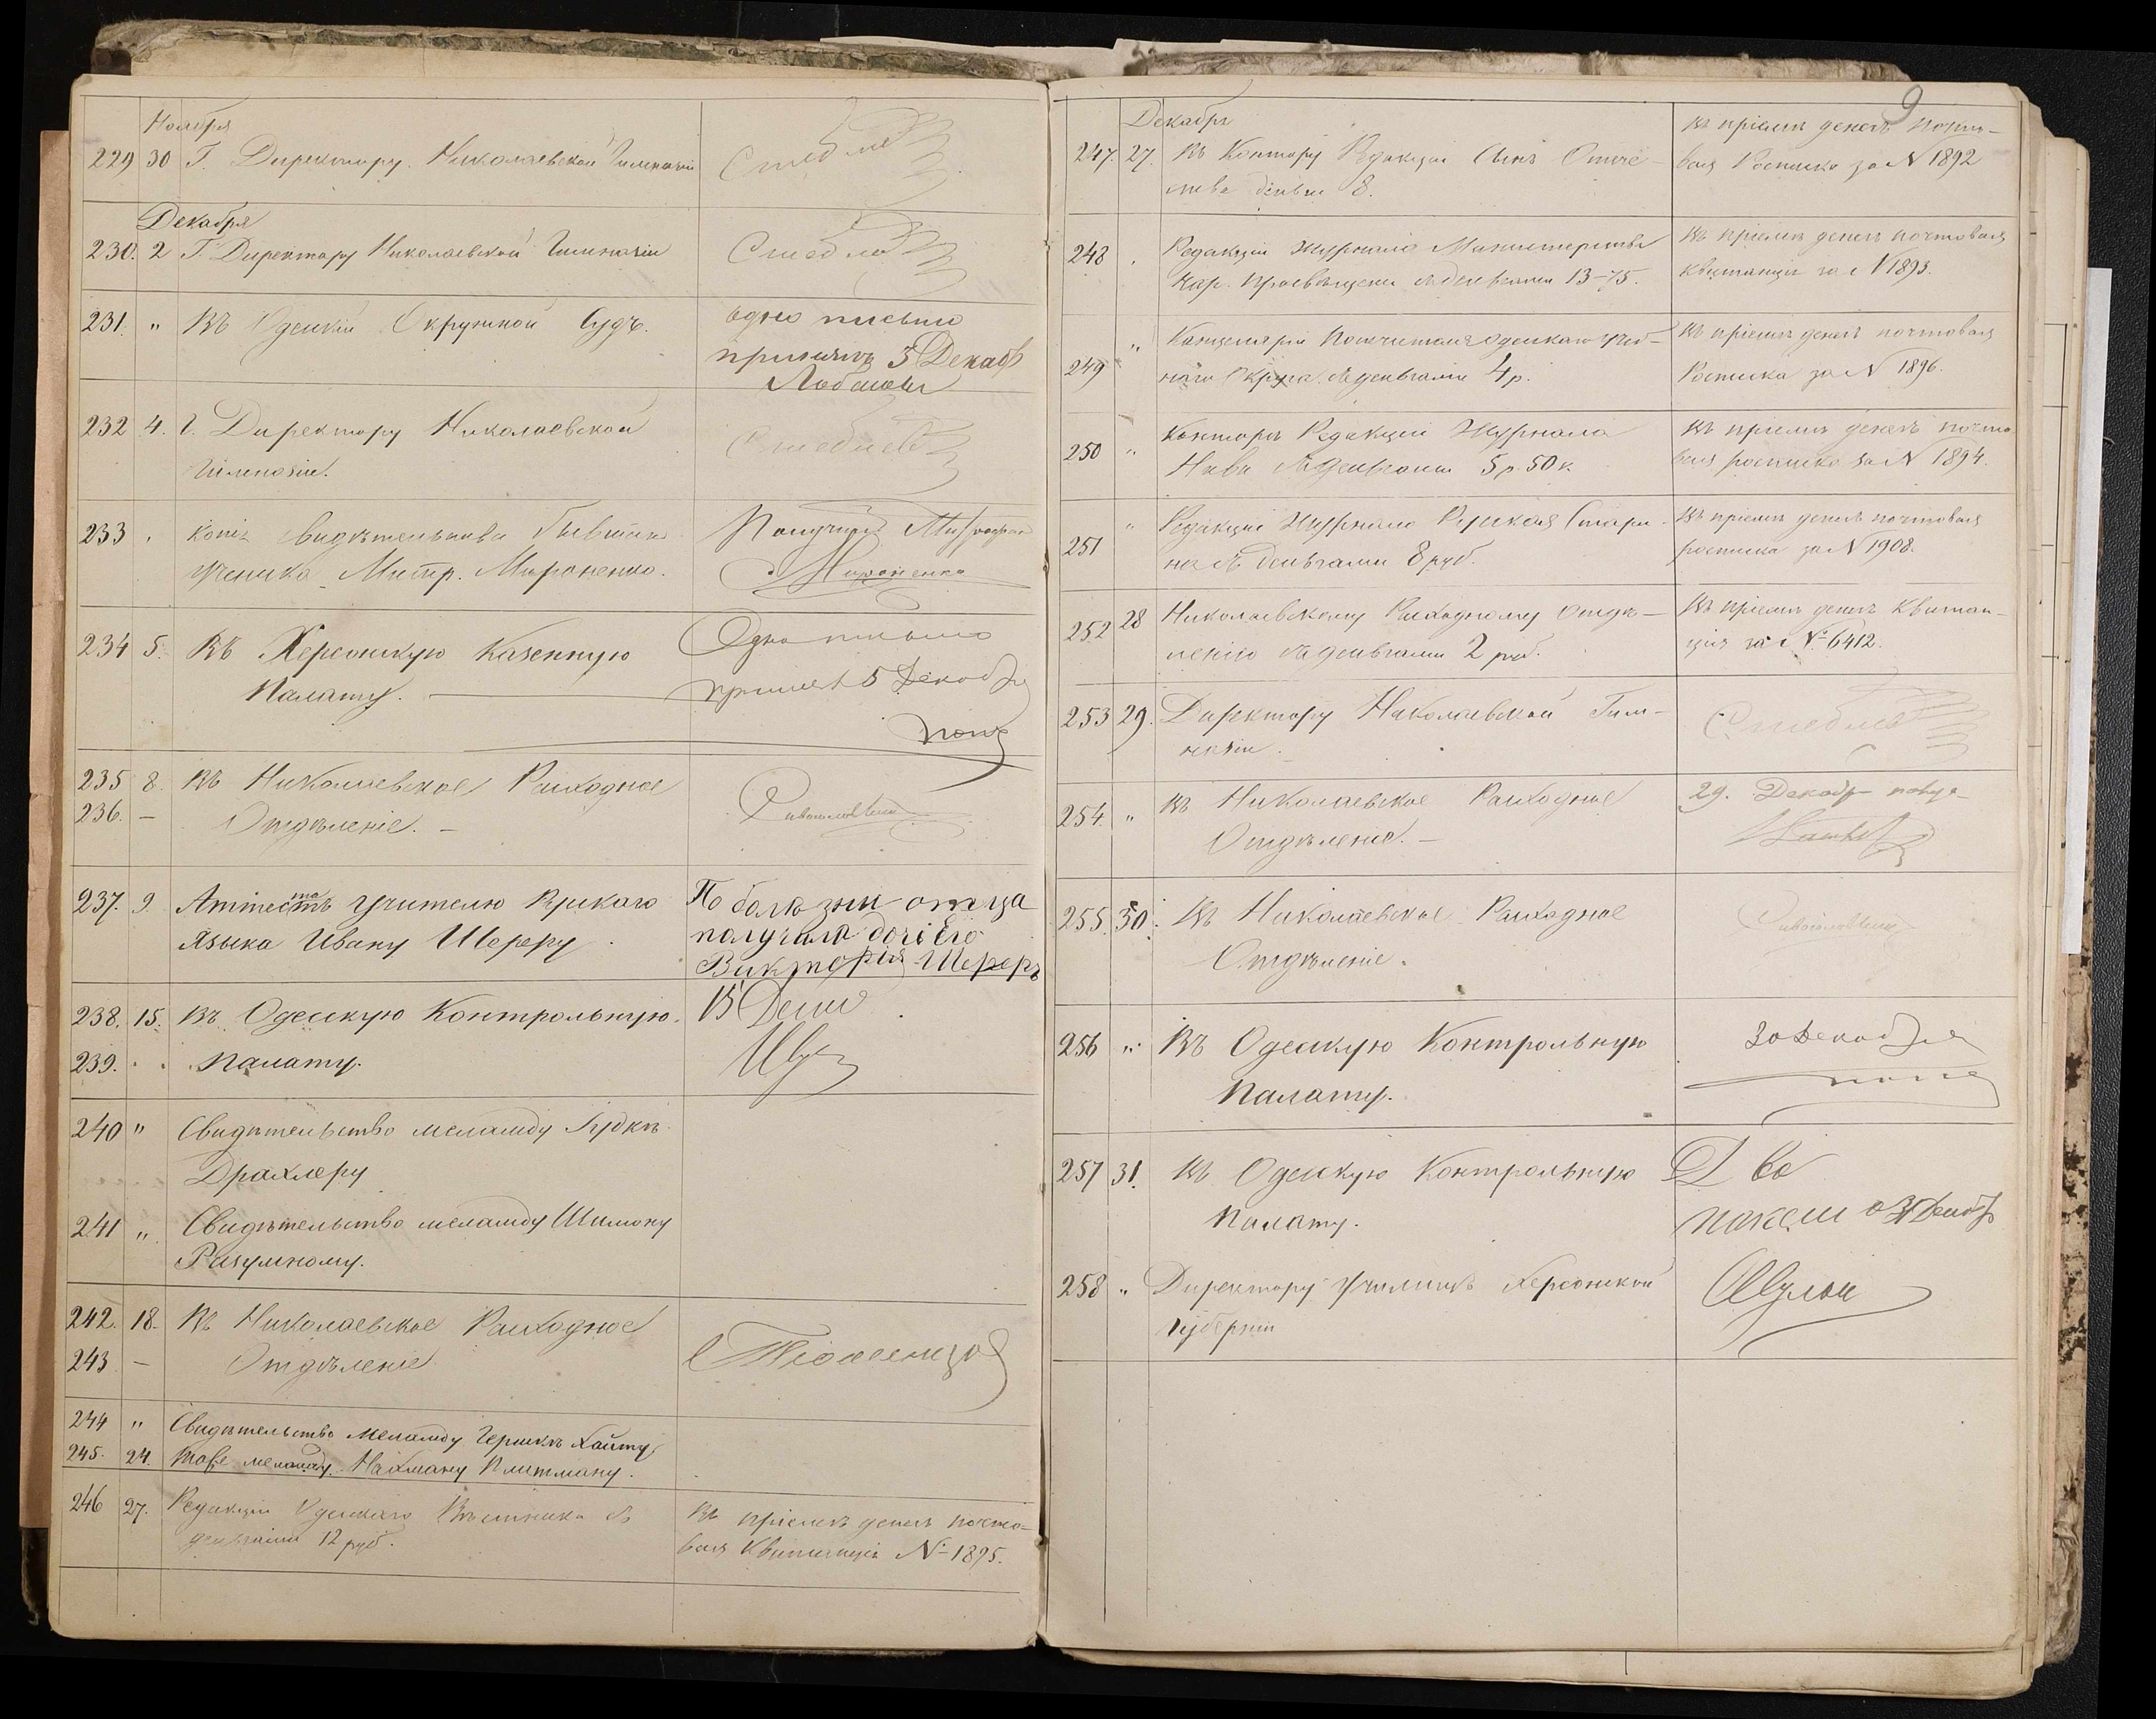 Ноября
229 30 Г. Директору Николаевской Гимназіи
Декабря
230. 2 Г. Директору Николаевской Гимназіи
231. " Въ Одесскій Окружной Судъ.
одно письмо
принялъ 5 Декаб
232 4. Г. Директору Николаевской
Гимназіи.
233 Копія Свидѣтельства бывшаго
ученика Митр. Мироненко.
Получилъ Митрофан
Мироненко
234 5. Въ Херсонскую Казенную
Палату.
Одно письмо
5 Декабря
235 8. Въ Николаевское Расходное
236. — Отдѣленіе. —
237. 9. Аттестатъ учителю Рускаго
языка Ивану Шереру.
По болѣзни отца
получила дочь Его
Викторія Шереръ
238. 15. Въ Одесскую Контрольную
239. Палату.
15 Дек
240 " Свидѣтельство меламду Лудкѣ
Драхлеру
241 " Свидѣтельство меламду Шимону
Разумному.
242. 18. Въ Николаевское Расходное
243 — Отдѣленіе
244 " Свидѣтельство меламду Гершкѣ
245. 24. Тоже меламду Нахману Плитману.
246 27. Редакціи Одесскаго Вѣстника съ
деньгами 12 руб.
Въ пріемѣ денегъ почто-
вая Квитанція № 1895.
9
Декабрь
247. 27. Въ Контору Редакціи Сынъ Отече-
ства деньги 8.
Въ пріемѣ денегъ почто-
вая Росписка за № 1892
248 Редакціи Журнала Министерства
Нар. Просвѣщенія съ деньгами 13-75.
Въ пріемѣ денегъ почтовая
квитанція за № 1893.
249 " Канцеляріи Попечителя Одесскаго Учеб-
наго Округа съ деньгами 4 р.
Въ пріемѣ денегъ почтовая
Росписка за № 1896.
250 " Конторѣ Редакціи Журнала
Нива съ деньгами 5 р. 50 к.
Въ пріемѣ денегъ почто
вая росписка за № 1894.
251 " Редакціи Журнала Руская Стари-
на съ деньгами 8 руб.
Въ пріемѣ денегъ почтовая
росписка за № 1908.
252 28 Николаевскому Расходному Отдѣ-
ленію съ деньгами 2 руб.
Въ пріемѣ денегъ Квитан-
ція за № 6412.
253 29. Директору Николаевской Гим-
назіи.
254. " Въ Николаевское Расходное
Отдѣленіе. —
29. Декабр
255. 30. Въ Николаевское Расходное
Отдѣленіе.
256 " Въ Одесскую Контрольную
Палату.
30 Декабря
257 31. Въ Одесскую Контрольную
Палату.
Два
31 Декабр
258 " Директору Училищъ Херсонской
Губерніи